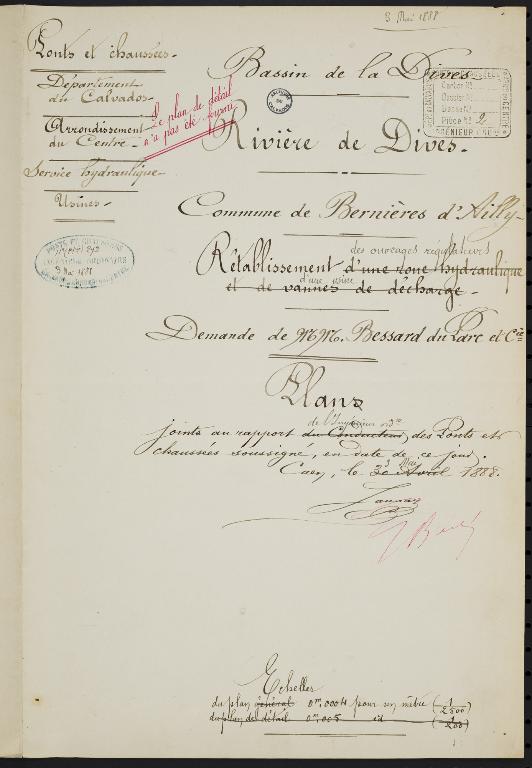 3 Mai 1888
Ponts et chaussées
Département
du Calvados
Arrondissement
du Centre
Service hydraulique
Usines
Le plan de détail
n'a pas été fourni
Bassin de la Dives
ARCHIVES DU CALVADOS
Carton N°
Dossier N°
Pièce N° 2
Rivière de Dives
Commune de Bernières d'Ailly
des ouvrages régulateurs
Rétablissement d'une roue hydraulique
d'une usine
et de vannes de décharge
Demande de MM. Bessard du Parc et Cie
Plans
de l'Ingénieur ord.re
joints au rapport du Conducteur des Ponts et
chaussées soussigné, en date de ce jour.
3 Mai
Caen, le 30 Avril 1888.
Echelles
du plan général 0m,0004 pour un mètre (1/2500)
du plan de détail 0m,005 id (1/200)